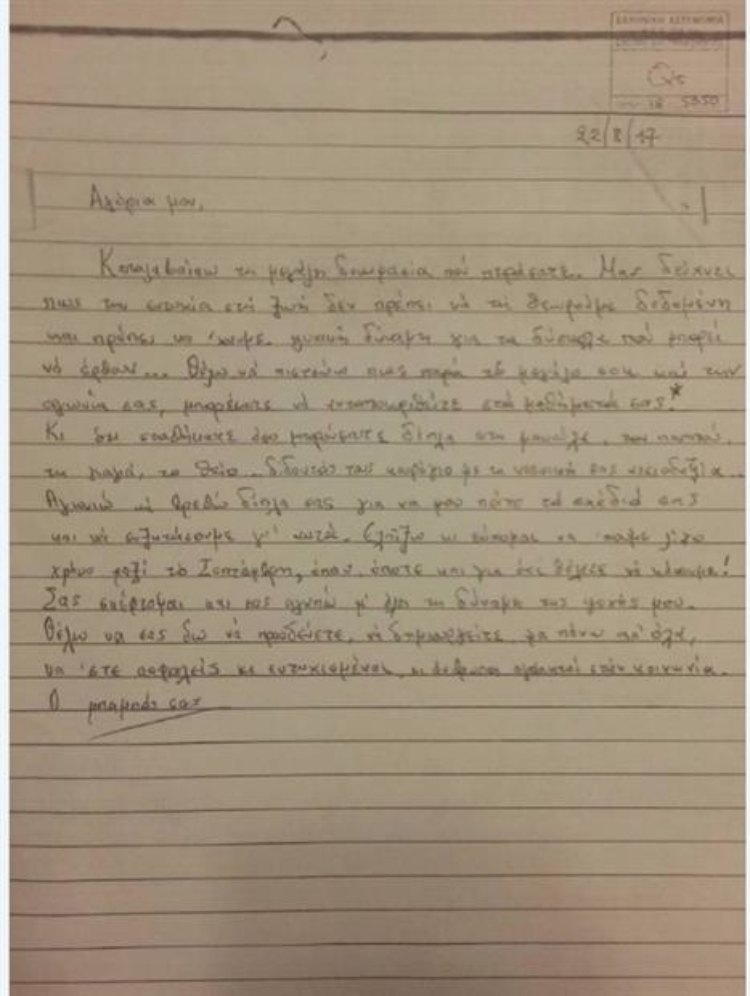 ΕΛΛΗΝΙΚΗ ΑΣΤΥΝΟΜΙΑ
18 5350
22/8/17
Αγόρια μου,
Καταλαβαίνω τη μεγάλη δοκιμασία πού περάσατε.. Μας δείχνει
πως την ευτυχία στή ζωή δεν πρέπει νά τή θεωρούμε δεδομένη
και πρέπει να 'χουμε ψυχική δύναμη για τα δύσκολα πού μπορεί
νά έρθουν... Θέλω νά πιστεύω πως παρά τό μεγάλο σοκ καί την
αγωνία σας, μπορέσατε νά ανταποκριθείτε στά μαθήματά σας.*
Κι ότι σταθήκατε όσο μπορούσατε δίπλα στη μανούλα, τον παππού,
τη γιαγιά, το θείο.. δίδοντάς τους κουράγιο με τη νεανική σας αισιοδοξία..
Αγωνιώ νά βρεθώ δίπλα σας για να μου πείτε τά σχέδιά σας
και νά συζητήσουμε γι' αυτά. Ελπίζω κι εύχομαι να 'χουμε λίγο
χρόνο μαζί τό Σεπτέμβρη, όπου, όποτε και για ότι θέλετε νά κάνουμε!
Σας σκέφτομαι και σας αγαπώ μ' όλη τη δύναμη της ψυχής μου.
Θέλω να σας δω νά προοδεύετε, νά δημιουργείτε μα πάνω απ' όλα,
να 'στε ασφαλείς κι ευτυχισμένοι, κι άνθρωποι αγαπητοί στην κοινωνία.
Ο μπαμπάς σας